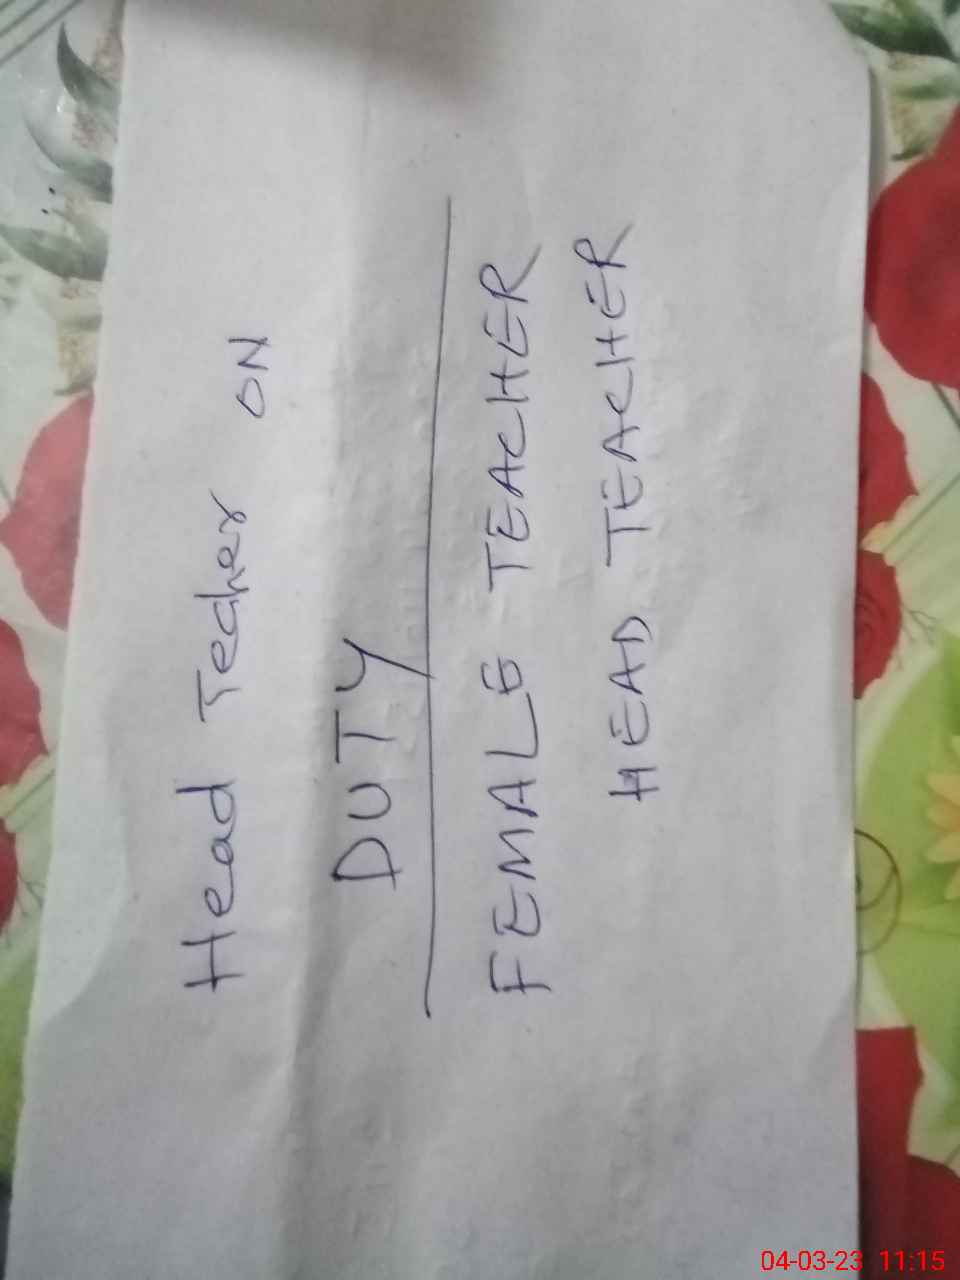 Head Techer ON
DUTY
FEMALE TEACHER
HEAD TEACHER
04-03-23 11:15